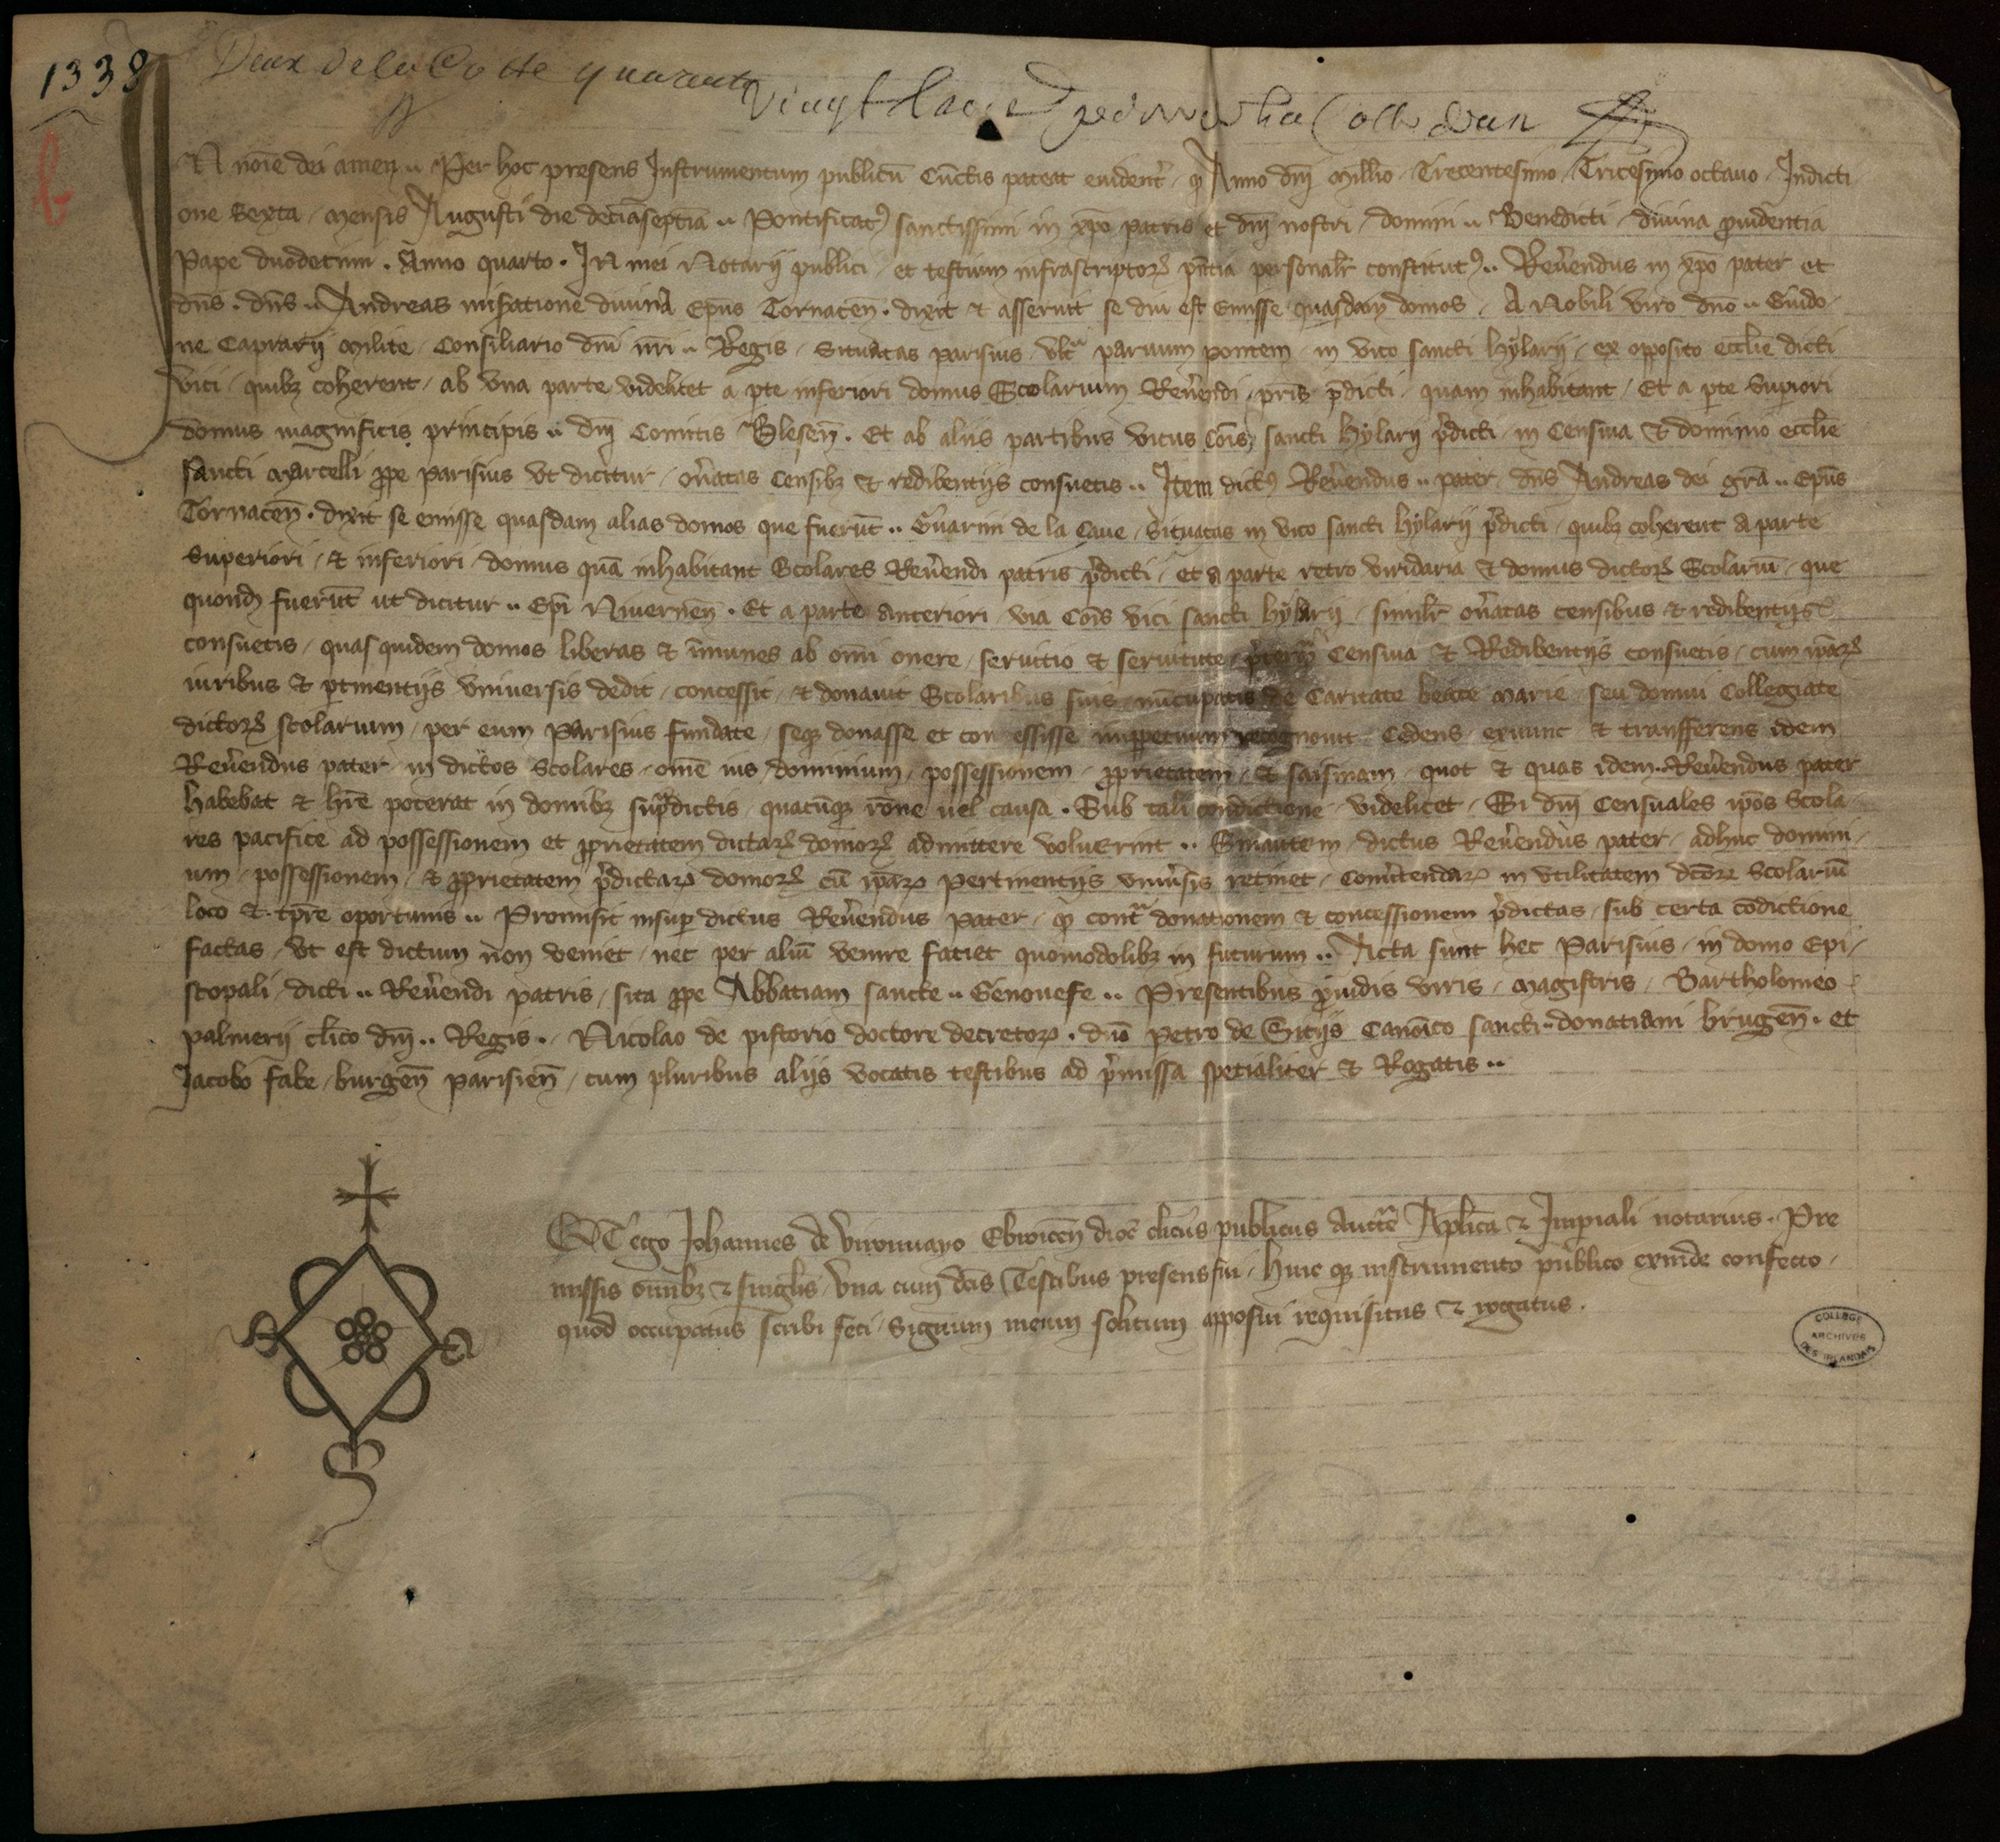 1338
Deux de la Cotte quarante
vingt
b
IN noīe dei amen .. Per hoc presens Instrumentum publicū Cūctis pateat euident̄ ꝙ Anno dn̄i Millīo Trecentesimo Tricesimo octauo Indicti
one Sexta mensis Augusti die decīaseptīa .. Pontificatꝰ sanctissimi in xp̄o patris et dn̄i nostri domini .. Benedicti diuina ꝓuidentia
Pape duodecimi . Anno quarto . In mei Notarij publici et testium infrascriptoꝝ p̄ntia personalr̄ constitutꝰ .. Reu̅endus in xp̄o pater et
dn̄s . dn̄s .. Andreas mis̄atione diuina Ep̄us Tornaceñ . dixit ⁊ asseruit se diu est Emisse quasdam domos A Nobili viro dn̄o .. Guido
ne Caprarij Milite Consiliario dn̄i nr̄i .. Regis Situatas parisius vlt̄ᵃ paruum pontem in vico sancti hylarij ex opposito eccl̄ie dicti
vici quibꝫ coherent ab vna parte videlicet a ꝑte inferiori domus Scolarium Reu̅endi pr̄is p̄dicti quam inhabitant Et a ꝑte Supiori
domus magnificis principis .. dn̄i Comitis Bleseñ . Et ab aliis partibus vicus Cōis sancti hylarij p̄dicti in Censiua ⁊ dominio eccl̄ie
sancti Marcelli ꝓpe parisius vt dicitur on̄atas Censibꝫ ⁊ redibentijs consuetis .. Item dictꝰ Reu̅endus .. pater dn̄s Andreas dei gr̄a .. Ep̄us
Tornaceñ . dixit se emisse quasdam alias domos que fuerūt .. Guarini de la Caue Situatas in vico sancti hylarij p̄dicti quibꝫ coherent A parte
Superiori ⁊ inferiori domus quā inhabitant Scolares Reu̅endi patris p̄dicti et a parte retro viridaria ⁊ domus dictoꝝ Scolariū que
quondā fuerūt ut dicitur .. Ep̄i Niuerneñ . Et a parte anteriori via Cōis vici sancti hylarij similr̄ on̄atas censibus ⁊ redibentijs
consuetis quas quidem domos liberas ⁊ īmunes ab om̄i onere seruitio ⁊ seruitute Censiua ⁊ Redibentijs consuetis cum ip̄aꝝ
iuribus ⁊ ꝑtinentijs vniuersis dedit concessit ⁊ donauit Scolaribus suis nūcupatis de Caritate beate Marie seu domui Collegiate
dictoꝝ scolarium per eum parisius fundate seqꝫ donasse et concessisse inperpetuum recognouit Cedens exnunc ⁊ transferens idem
Reu̅endus pater in dictos Scolares om̄e ius dominium possessionem ꝓprietatem ⁊ saisinam quot ⁊ quas idem .. Reu̅endus pater
habebat ⁊ hr̄e poterat in domibꝫ sup̄dictis quacūqꝫ rōne uel causa . Sub tali condictione videlicet Si dn̄i Censuales ip̄os Scola
res pacifice ad possessionem et ꝓprietatem dictaꝝ domoꝝ admittere voluerint .. Sinautem dictus Reu̅endus pater adhuc domini
um possessionem ⁊ ꝓprietatem p̄dictaꝝ domoꝝ cū ip̄aꝝ pertinentijs vniu̅sis retinet Conu̅tendaꝝ in vtilitatem dc̄oꝝ Scolariū
loco ⁊ tp̄re oportunis .. Promisit insuꝑ dictus Reu̅endus Pater ꝙ cont̄ᵃ donationem ⁊ concessionem p̄dictas sub certa cōdictione
factas vt est dictum non veniet nec per aliū venire faciet quomodolibꝫ in futurum .. Acta sunt hec Parisius in domo Epi
scopali dicti .. Reu̅endi patris sita ꝓpe Abbatiam sancte .. Genouefe .. Presentibus ꝓuidis viris Magistris Bartholomeo
palmerij cl̄ico dn̄i .. Regis . Nicolao de pistorio doctore decretoꝝ . dn̄o Petro de Canōico sancti .. donatiani brugeñ . et
Jacobo fabe burgeñ parisieñ cum pluribus alijs vocatis testibus ad p̄missa specialiter ⁊ Rogatis ..
ET ego Johannes de Ebroiceñ dioc̄ cl̄icus publicus Auctt̄e Apl̄ica ⁊ Imperiali notarius . Pre
missis om̄ibꝫ ⁊ singl̄is vna cum dc̄is Testibus presens fui huic qꝫ instrumento publico exinde confecto
quod occupatus scribi feci Signum meum solitum apposui requisitus ⁊ rogatus .
COLLEGE
ARCHIVES
DES IRLANDAIS